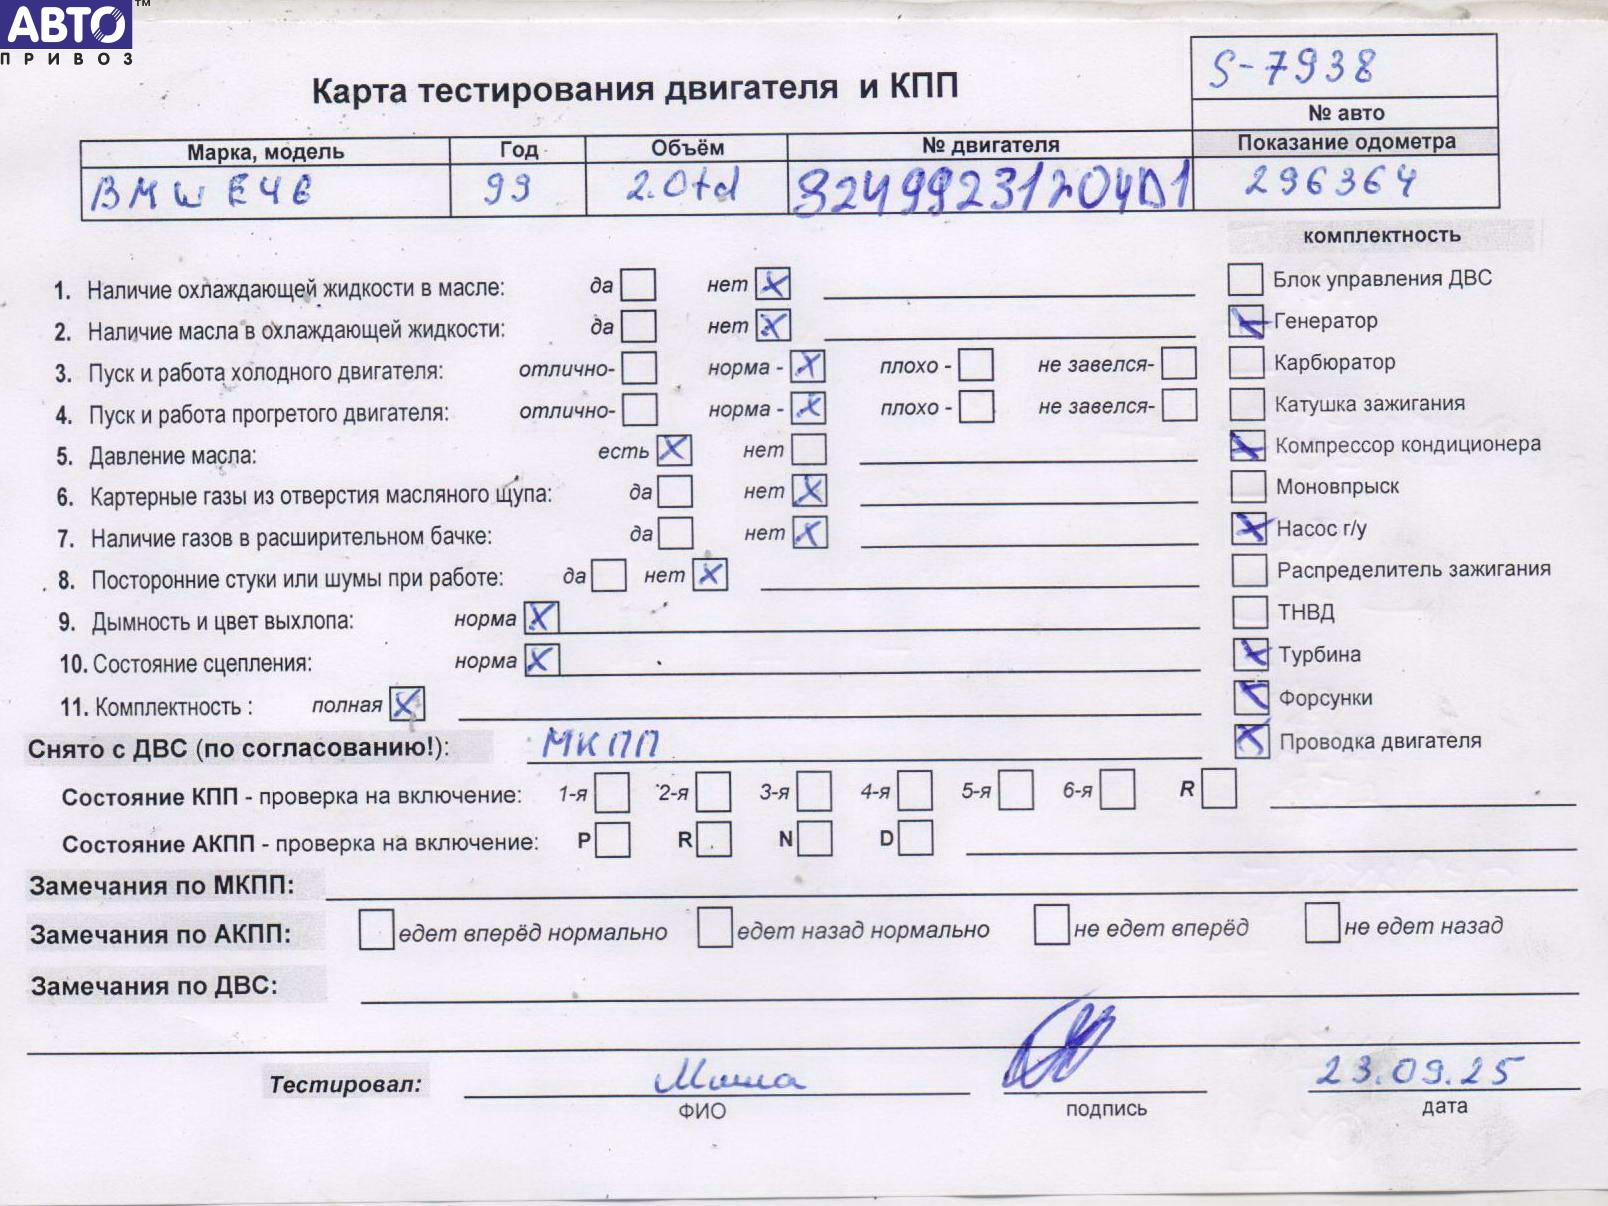 АВТО™
ПРИВОЗ
S-7938
№ авто
Карта тестирования двигателя и КПП
Марка, модель Год Объём № двигателя Показание одометра
BMW E46 99 2.0td 32499231204D1 296364
комплектность
1. Наличие охлаждающей жидкости в масле: да нет X
2. Наличие масла в охлаждающей жидкости: да нет X
3. Пуск и работа холодного двигателя: отлично- норма - X плохо - не завелся-
4. Пуск и работа прогретого двигателя: отлично- норма - X плохо - не завелся-
5. Давление масла: есть X нет
6. Картерные газы из отверстия масляного щупа: да нет X
7. Наличие газов в расширительном бачке: да нет X
8. Посторонние стуки или шумы при работе: да нет X
9. Дымность и цвет выхлопа: норма X
10. Состояние сцепления: норма X
11. Комплектность : полная X
Блок управления ДВС
X Генератор
Карбюратор
Катушка зажигания
X Компрессор кондиционера
Моновпрыск
X Насос г/у
Распределитель зажигания
ТНВД
X Турбина
X Форсунки
X Проводка двигателя
Снято с ДВС (по согласованию!): МКПП
Состояние КПП - проверка на включение: 1-я 2-я 3-я 4-я 5-я 6-я R
Состояние АКПП - проверка на включение: P R N D
Замечания по МКПП:
Замечания по АКПП: едет вперёд нормально едет назад нормально не едет вперёд не едет назад
Замечания по ДВС:
Тестировал: Миша 23.09.25
ФИО подпись дата